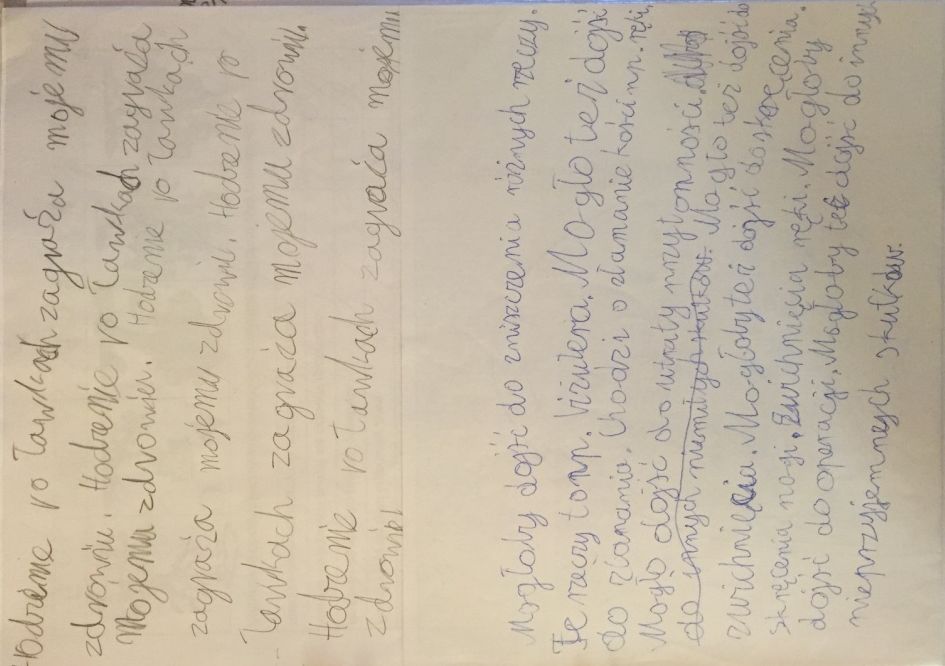 Hodzenie po ławkach zagraża mojemu
zdrowiu. Hodzenie po ławkach zagraża
Mojemu zdrowiu. Hodzenie po ławkach
zagraża mojemu zdrowiu. Hodzenie po
ławkach zagraża mojemu zdrowiu.
Hodzenie po ławkach zagraża mojemu
zdrowiu!
Mogłoby dojść do zniszczenia różnych rzeczy.
Te rzeczy to np. biżuteria. Mogło też dojść
do złamania. Chodzi o złamanie kości np. ręki.
Mogło dojść do utraty przytomności.
do innych niemiłych skutków. Mogło też dojść do
zwichnięcia. Mogłoby też dojść do skręcenia.
Skręcenia nogi. Zwichnięcia ręki. Mogłoby
dojść do operacji. Mogłoby też dojść do innych
nieprzyjemnych skutków.